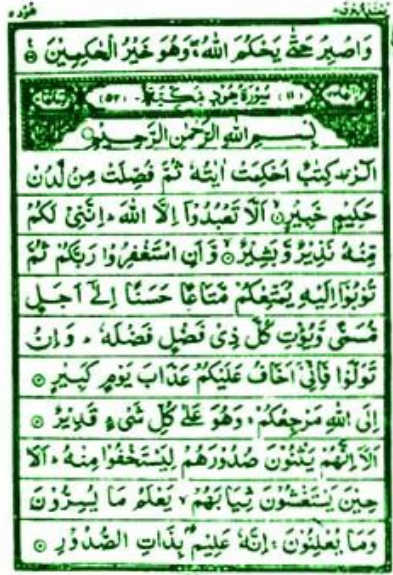 هود ١١
يعتذرون ١١
وَاصْبِرْ حَتّٰى يَحْكُمَ اللّٰهُ ۚ وَهُوَ خَيْرُ الْحٰكِمِيْنَ
(١١) سُوْرَةُ هُوْدٍ مَّكِّيَّةٌ (٥٢)
بِسْمِ اللّٰهِ الرَّحْمٰنِ الرَّحِيْمِ
الٓرٰ ۚ كِتٰبٌ اُحْكِمَتْ اٰيٰتُهٗ ثُمَّ فُصِّلَتْ مِنْ لَّدُنْ
حَكِيْمٍ خَبِيْرٍ ۙ اَلَّا تَعْبُدُوْٓا اِلَّا اللّٰهَ ؕ اِنَّنِيْ لَكُمْ
مِّنْهُ نَذِيْرٌ وَّبَشِيْرٌ ۙ وَّاَنِ اسْتَغْفِرُوْا رَبَّكُمْ ثُمَّ
تُوْبُوْٓا اِلَيْهِ يُمَتِّعْكُمْ مَّتَاعًا حَسَنًا اِلٰٓى اَجَلٍ
مُّسَمًّى وَّيُؤْتِ كُلَّ ذِيْ فَضْلٍ فَضْلَهٗ ؕ وَاِنْ
تَوَلَّوْا فَاِنِّيْٓ اَخَافُ عَلَيْكُمْ عَذَابَ يَوْمٍ كَبِيْرٍ
اِلَى اللّٰهِ مَرْجِعُكُمْ ۚ وَهُوَ عَلٰى كُلِّ شَيْءٍ قَدِيْرٌ
اَلَآ اِنَّهُمْ يَثْنُوْنَ صُدُوْرَهُمْ لِيَسْتَخْفُوْا مِنْهُ ؕ اَلَا
حِيْنَ يَسْتَغْشُوْنَ ثِيَابَهُمْ ۙ يَعْلَمُ مَا يُسِرُّوْنَ
وَمَا يُعْلِنُوْنَ ۚ اِنَّهٗ عَلِيْمٌۢ بِذَاتِ الصُّدُوْرِ